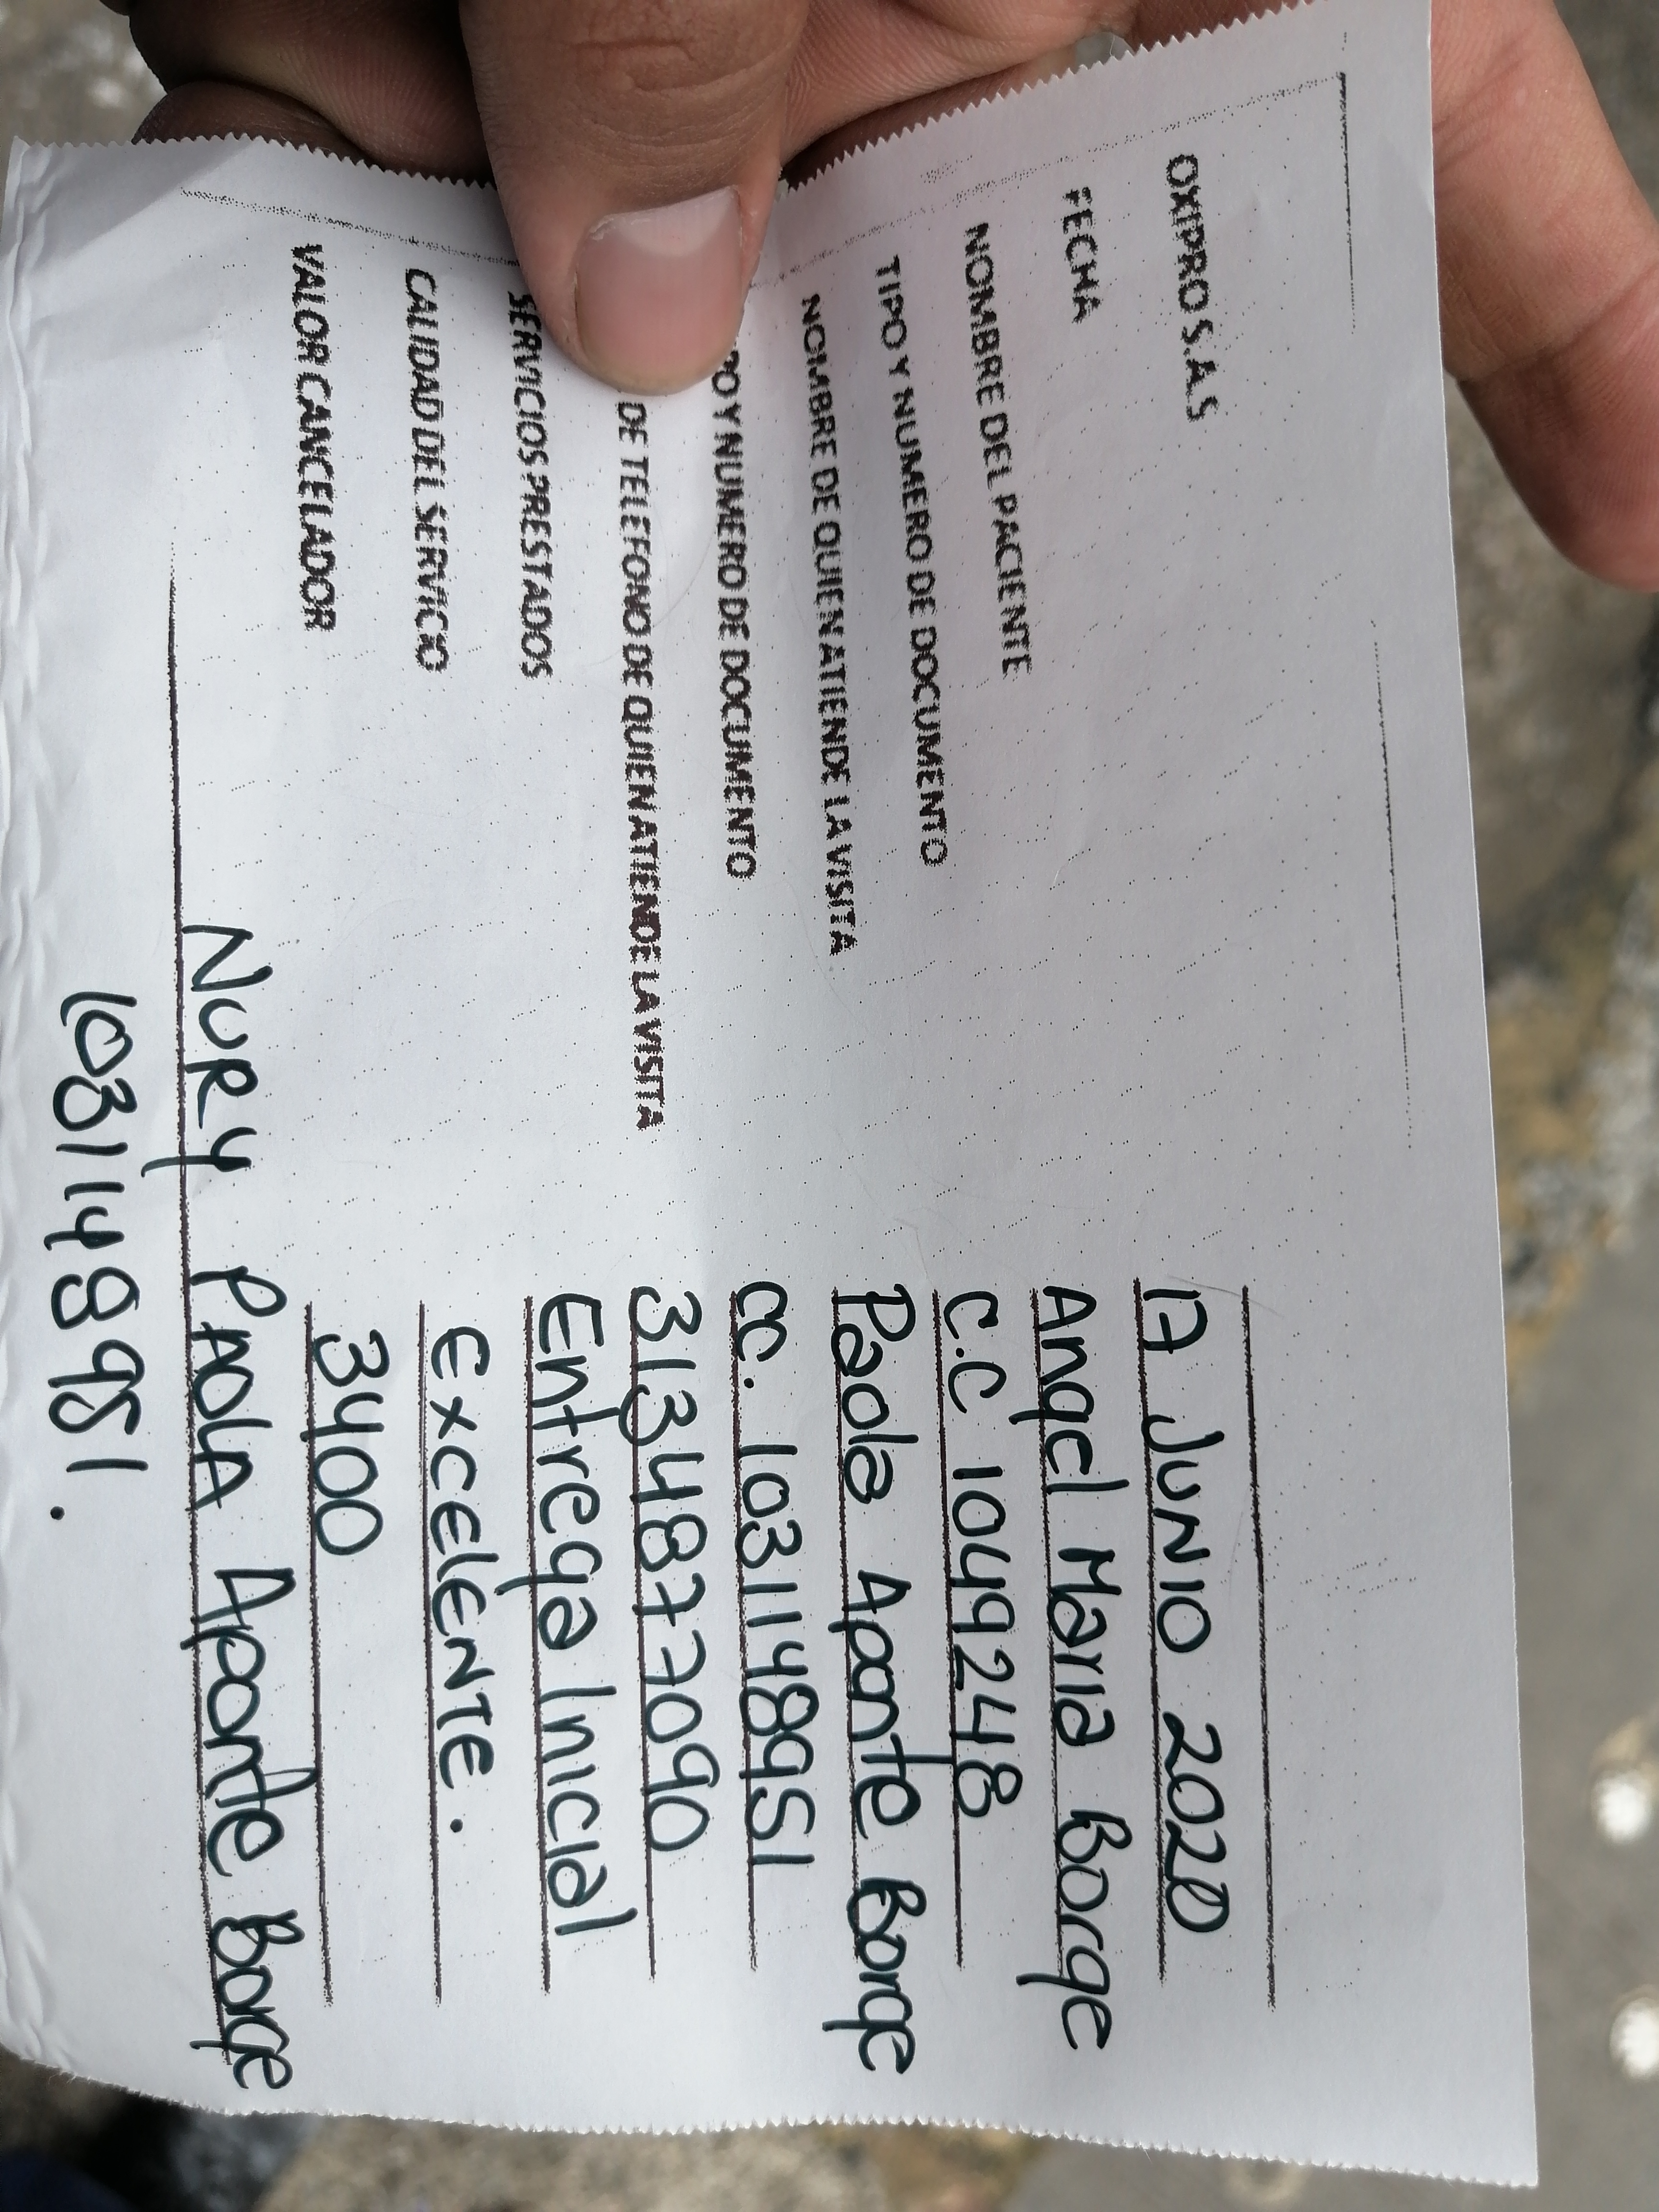 OXIPRO S.A.S
FECHA 17 JUNIO 2020
NOMBRE DEL PACIENTE Angel Maria Borge
TIPO Y NUMERO DE DOCUMENTO C.C 1049248
NOMBRE DE QUIEN ATIENDE LA VISITA Paola Aponte Borge
PO Y NUMERO DE DOCUMENTO CC. 1031148951
DE TELEFONO DE QUIEN ATIENDE LA VISITA 3134877090
SERVICIOS PRESTADOS Entrega Inicial
CALIDAD DEL SERVICIO EXCELENTE.
VALOR CANCELADOR 3400
NURY PAOLA Aponte Borge
1031148951.